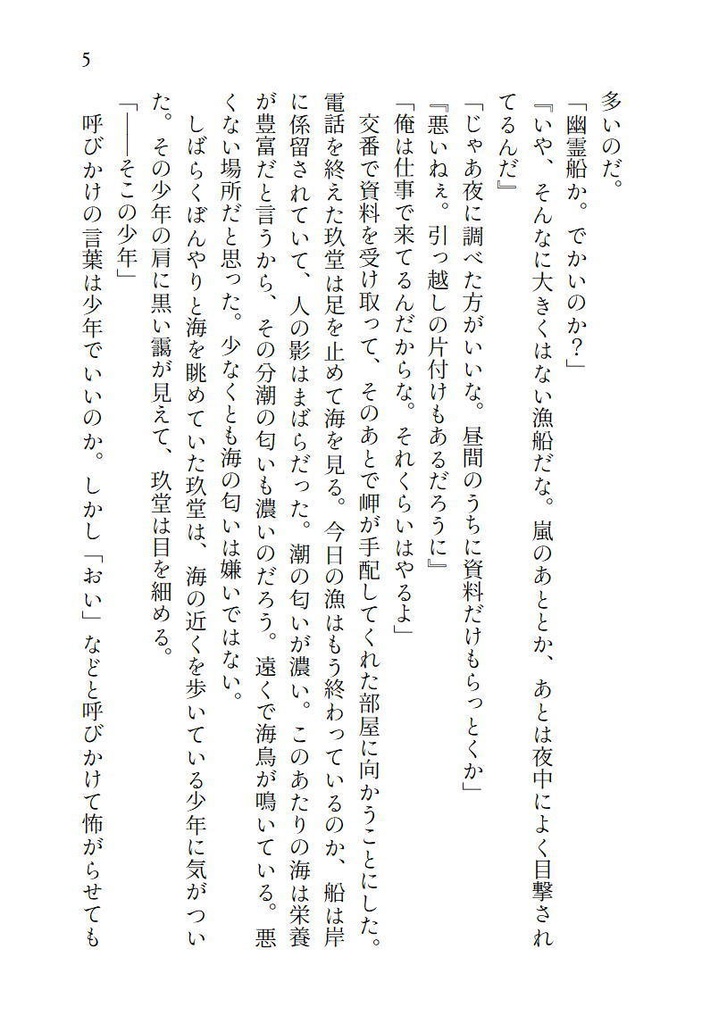 5
多いのだ。
「幽霊船か。でかいのか？」
『いや、そんなに大きくはない漁船だな。嵐のあととか、あとは夜中によく目撃され
てるんだ』
「じゃあ夜に調べた方がいいな。昼間のうちに資料だけもらっとくか」
『悪いねぇ。引っ越しの片付けもあるだろうに』
「俺は仕事で来てるんだからな。それくらいはやるよ」
交番で資料を受け取って、そのあとで岬が手配してくれた部屋に向かうことにした。
電話を終えた玖堂は足を止めて海を見る。今日の漁はもう終わっているのか、船は岸
に係留されていて、人の影はまばらだった。潮の匂いが濃い。このあたりの海は栄養
が豊富だと言うから、その分潮の匂いも濃いのだろう。遠くで海鳥が鳴いている。悪
くない場所だと思った。少なくとも海の匂いは嫌いではない。
しばらくぼんやりと海を眺めていた玖堂は、海の近くを歩いている少年に気がつい
た。その少年の肩に黒い靄が見えて、玖堂は目を細める。
「――そこの少年」
呼びかけの言葉は少年でいいのか。しかし「おい」などと呼びかけて怖がらせても